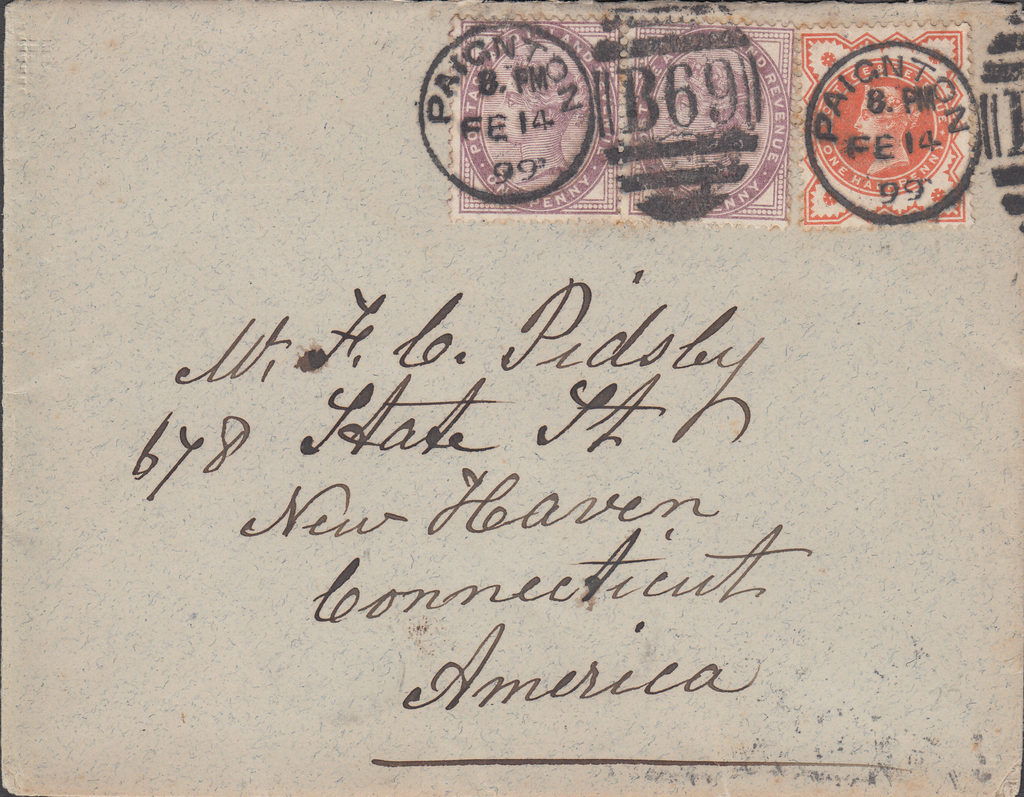 PAIGNTON
8. PM
FE 14
99
B69
PAIGNTON
8. PM
FE 14
99
POSTAGE AND REVENUE
PENNY
ONE HALFPENNY
Mr. F. C. Pidsley
678 State St
New Haven
Connecticut
America